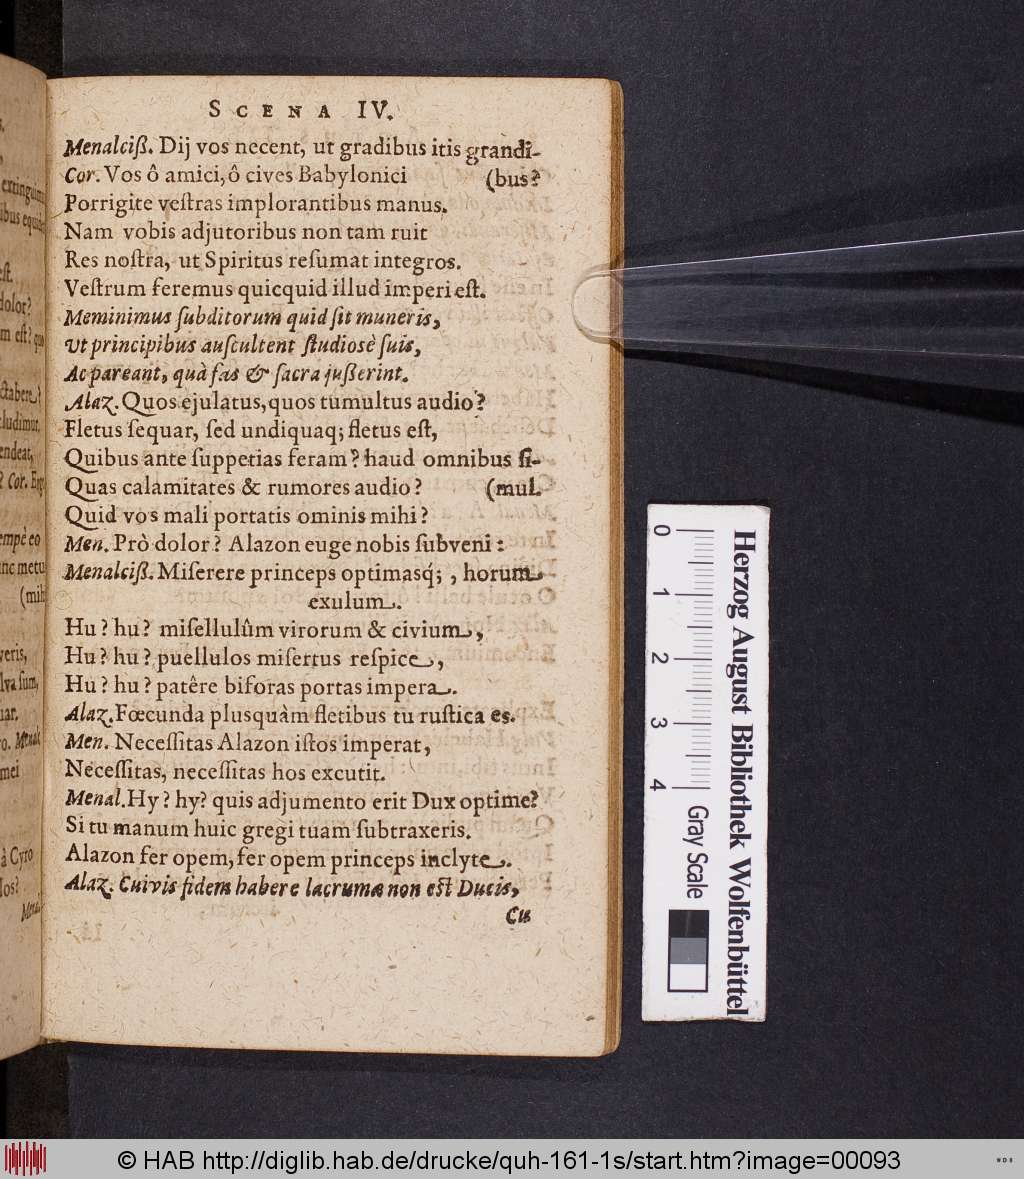 SCENA IV.
Menalciß. Dij vos necent, ut gradibus itis grandi-
Cor. Vos ô amici, ô cives Babylonici (bus?
Porrigite veſtras implorantibus manus.
Nam vobis adjutoribus non tam ruit
Res noſtra, ut Spiritus reſumat integros.
Veſtrum feremus quicquid illud imperi eſt.
Meminimus ſubditorum quid ſit muneris,
Vt principibus auſcultent ſtudiosè ſuis,
Ac pareant, quà fas & ſacra jußerint.
Alaz. Quos ejulatus, quos tumultus audio?
Fletus ſequar, ſed undiquaq; fletus eſt,
Quibus ante ſuppetias feram? haud omnibus ſi-
Quas calamitates & rumores audio? (mul.
Quid vos mali portatis ominis mihi?
Men. Prò dolor? Alazon euge nobis ſubveni:
Menalciß. Miſerere princeps optimasq́;, horum
exulum.
Hu? hu? miſellulûm virorum & civium,
Hu? hu? puellulos miſertus reſpice,
Hu? hu? patêre biforas portas impera.
Alaz. Fœcunda pluſquàm fletibus tu ruſtica es.
Men. Neceſſitas Alazon iſtos imperat,
Neceſſitas, neceſſitas hos excutit.
Menal. Hy? hy? quis adjumento erit Dux optime?
Si tu manum huic gregi tuam ſubtraxeris.
Alazon fer opem, fer opem princeps inclyte.
Alaz. Cuivis fidem habere lacrumæ non eſt Ducis,
Cu
extingui
ibus equid
eſt.
dolor?
m eſt? quo
ctabere?
cludimur,
endeat,
? Cor. Erg
empè eo
nc metu
(mih
veris,
lva ſum,
uar.
o. Menal
mei
à Cyro
los?
0 1 2 3 4
Gray Scale
Herzog August Bibliothek Wolfenbüttel
© HAB http://diglib.hab.de/drucke/quh-161-1s/start.htm?image=00093